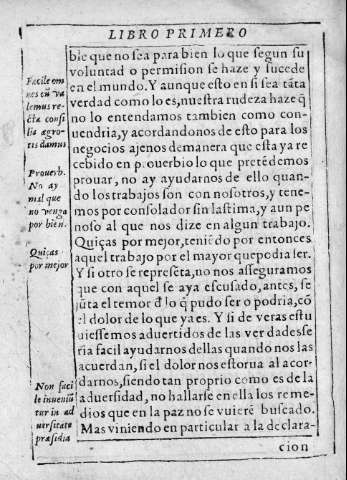 LIBRO PRIMERO
ble que no sea para bien lo que segun su
voluntad o permision se haze y sucede
en el mundo. Y aunque esto en si sea tãta
verdad como lo es, nuestra rudeza haze q̃
no lo entendamos tambien como con-
uendria, y acordandonos de esto para los
negocios ajenos demanera que esta ya re
cebido en prouerbio lo que pretẽdemos
prouar, no ay ayudarnos de ello quan-
do los trabajos son con nosotros, y tene-
mos por consolador sin lastima, y aun pe
noso al que nos dize en algun trabajo.
Quiças por mejor, teniẽdo por entonces
aquel trabajo por el mayor que podia ser.
Y si otro se represẽta, no nos asseguramos
que con aquel se aya escusado, antes, se
jũta el temor đ lo q̃ pudo ser o podria, cõ
el dolor de lo que ya es. Y si de veras estu
uiessemos aduertidos de las verdades se
ria facil ayudarnos dellas quando nos las
acuerdan, si el dolor no estorua al acor-
darnos, siendo tan proprio como es de la
aduersidad, no hallarse en ella los reme-
dios que en la paz no se vuierẽ buscado.
Mas viniendo en particular a la declara-
cion
Facile om
nes cũ va
lemus re-
cta consi
lia agro-
tis damus
Prouerb.
No ay
mal que
no venga
por bien.
Quiças
por mejor
Non faci
le inueniũ
tur in ad
uersitate
præsidia